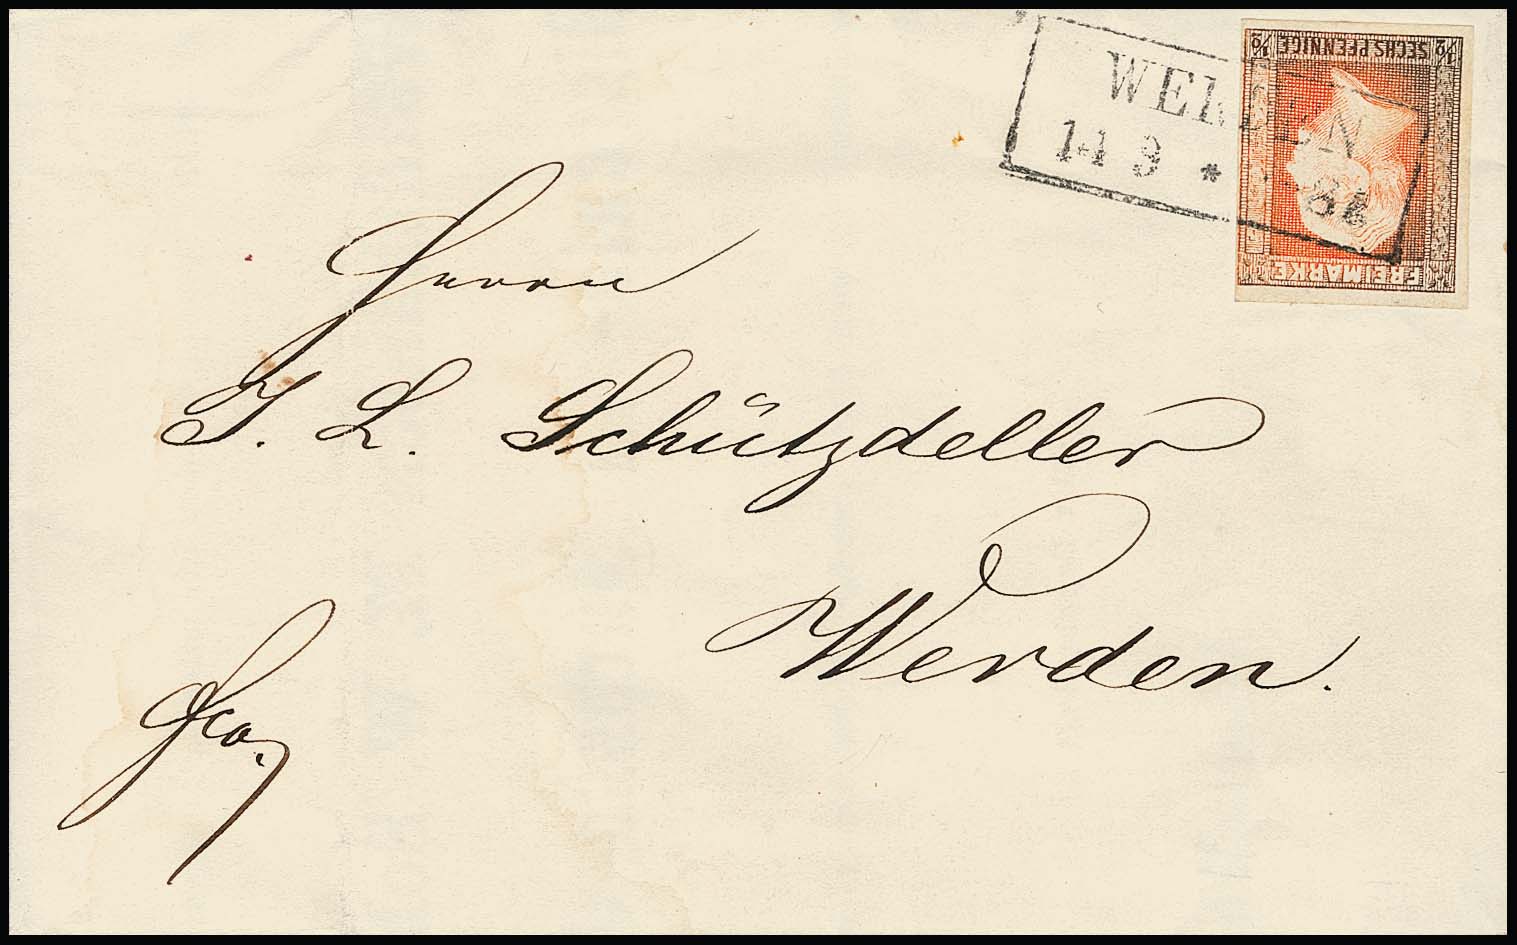 WERDEN
14 9 *
1/2 SECHS PFENNIGE 1/2
FREIMARKE
Herrn
J. L. Schützdeller
Werden.
fco.